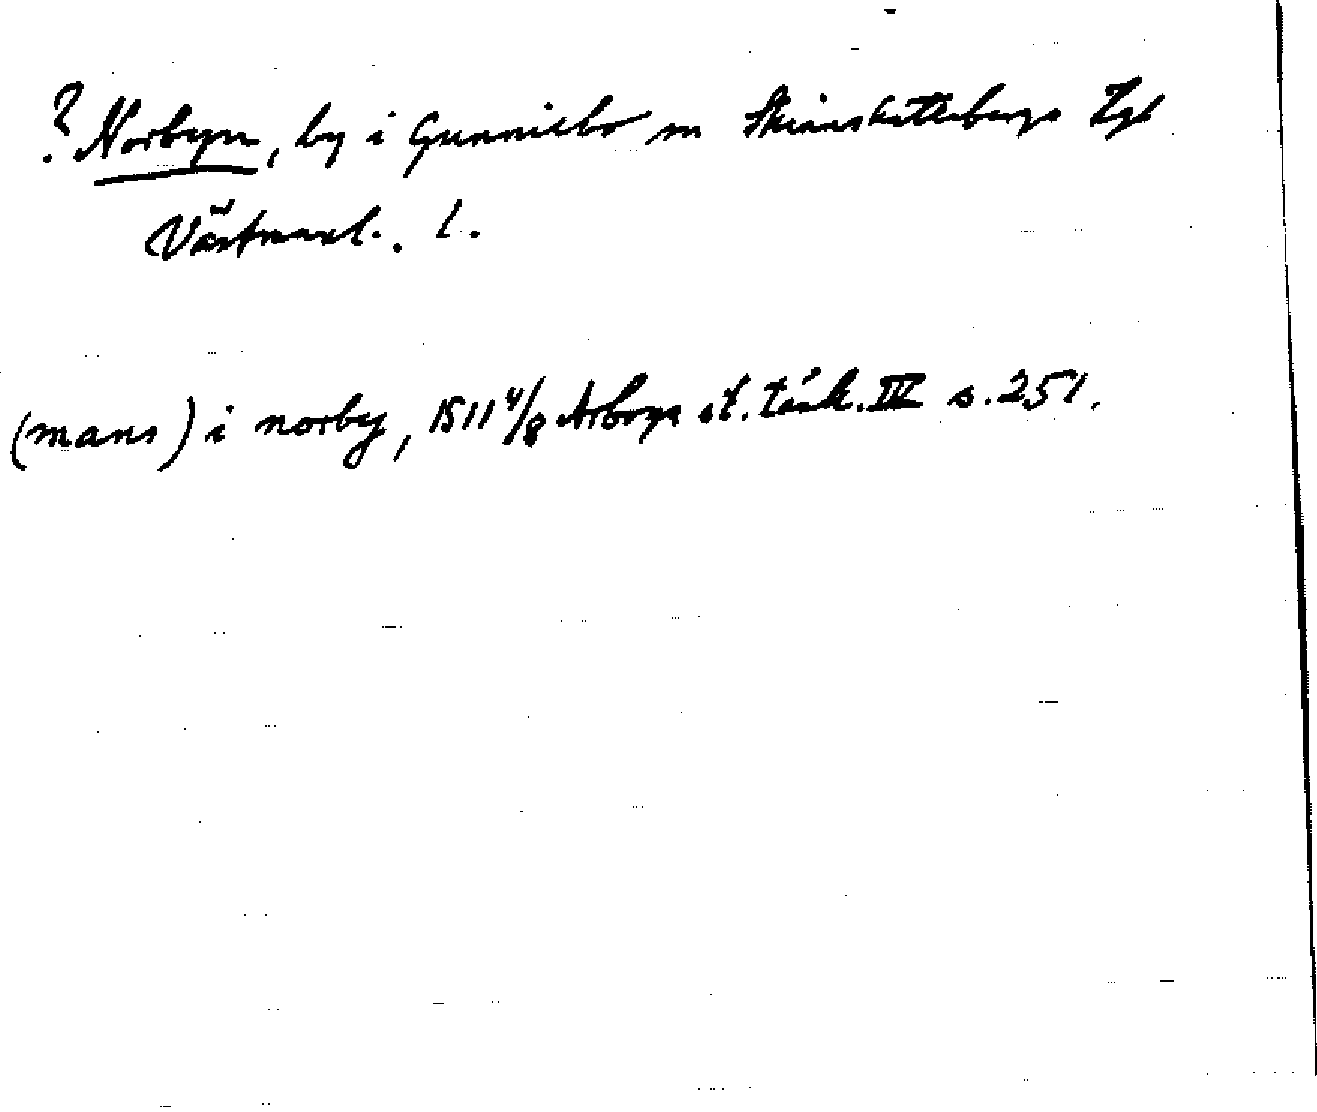 ? Norbyn, by i Gunnilbo sn Skinnskattebergs tgl
Västmanl. l.
(mans) i norby, 1511 4/8 Arboga st. tänk. III s. 251.